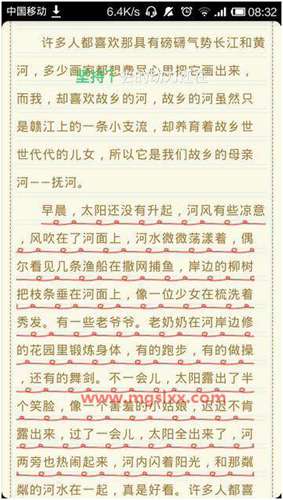 中国移动 6.4K/s 08:32
许多人都喜欢那具有磅礴气势长江和黄
河，多少画家都想费尽心思把它画出来，
坚持个
而我，却喜欢故乡的河，故乡的河虽然只
是赣江上的一条小支流，却养育着故乡世
世代代的儿女，所以它是我们故乡的母亲
河——抚河。
早晨，太阳还没有升起，河风有些凉意
，风吹在了河面上，河水微微荡漾着，偶
尔看见几条渔船在撒网捕鱼，岸边的柳树
把枝条垂在河面上，像一位少女在梳洗着
秀发。有一些老爷爷。老奶奶在河岸边修
的花园里锻炼身体，有的跑步，有的做操
，还有的舞剑。不一会儿，太阳露出了半
www.mgslxx.com
个笑脸，像一个害羞的小姑娘，迟迟不肯
露出来，过了一会儿，太阳全出来了，河
两旁也热闹起来，河内闪着阳光，和那粼
粼的河水在一起，真是好看。许多人都喜